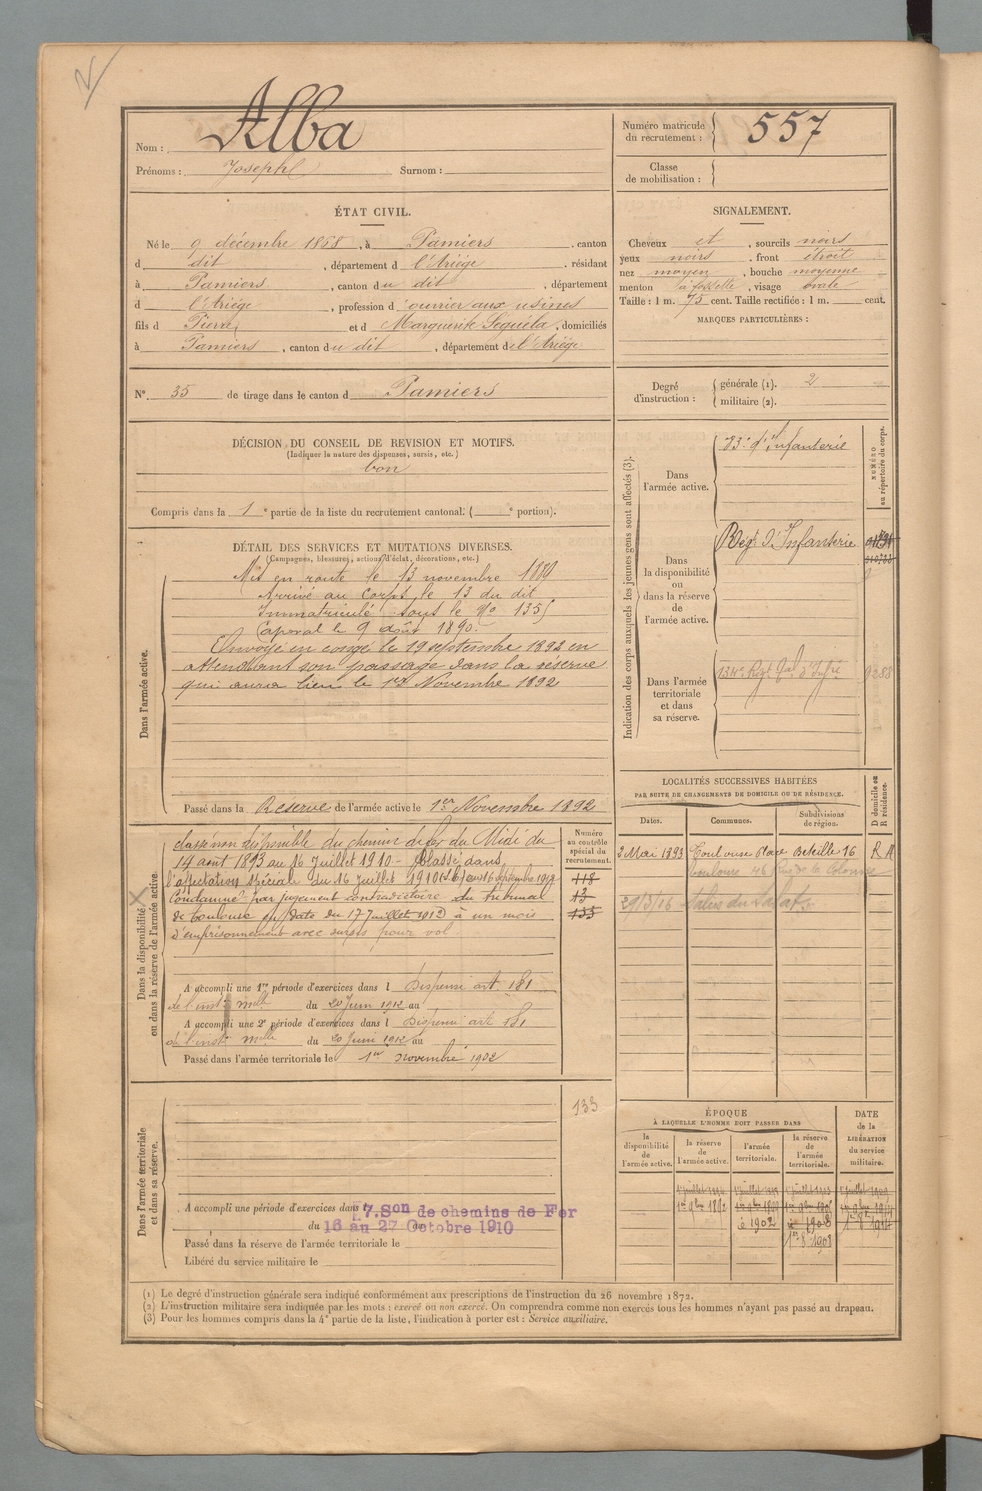 Nom : Alba
Prénoms : Joseph Surnom :
Numéro matricule du recrutement : 557
Classe de mobilisation :
ÉTAT CIVIL.
Né le 9 décembre 1868, à Pamiers, canton
d dit, département d l'Ariège, résidant
à Pamiers, canton du dit, département
d l'Ariège, profession d'ouvrier aux usines
fils d Pierre et d Marguerite Séguéla, domiciliés
à Pamiers, canton du dit, département de l'Ariège
N° 35 de tirage dans le canton d Pamiers
SIGNALEMENT.
Cheveux et, sourcils noirs
yeux noirs, front étroit
nez moyen, bouche moyenne
menton à fossette, visage ovale
Taille : 1 m. 75 cent. Taille rectifiée : 1 m. cent.
MARQUES PARTICULIÈRES :
Degré d'instruction : générale (1). 2
militaire (2).
DÉCISION DU CONSEIL DE REVISION ET MOTIFS.
(Indiquer la nature des dispenses, sursis, etc.)
bon
Compris dans la 1e partie de la liste du recrutement cantonal. ( e portion).
DÉTAIL DES SERVICES ET MUTATIONS DIVERSES.
(Campagnes, blessures, actions d'éclat, décorations, etc.)
Dans l'armée active.
Mis en route le 13 novembre 1889
Arrivé au Corps, le 13 du dit
Immatriculé sous le No 1355
Caporal le 9 août 1890.
Envoyé en congé le 19 septembre 1892 en
attendant son passage dans la réserve
qui aura lieu le 1er Novembre 1892
Passé dans la Réserve de l'armée active le 1er Novembre 1892
Indication des corps auxquels les jeunes gens sont affectés (3).
NUMÉRO au répertoire du corps.
Dans l'armée active.
d'Infanterie
Dans la disponibilité ou dans la réserve de l'armée active.
Regt d'Infanterie
Dans l'armée territoriale et dans sa réserve.
134e Regt
LOCALITÉS SUCCESSIVES HABITÉES
PAR SUITE DE CHANGEMENTS DE DOMICILE OU DE RÉSIDENCE.
Dates. Communes. Subdivisions de région. D domicile ou R résidence.
2 Mai 1893 Toulouse Place Béteille 16 R
Toulouse 46 Rue de la Colonne
29/3/16 Salies du Salat
Dans la disponibilité ou dans la réserve de l'armée active.
Numéro au contrôle spécial du recrutement.
classé non disponible du chemin de fer du Midi du
14 août 1893 au 16 Juillet 1910 - Classé dans
l'affectation spéciale du 16 Juillet 1910
Condamné par jugement contradictoire du tribunal
de Toulouse en date du 17 Juillet 1912 à un mois
d'emprisonnement avec sursis pour vol
118
13
133
A accompli une 1re période d'exercices dans l Dispensé art 181
de l'inst. mlle du 20 Juin 1912 au
A accompli une 2e période d'exercices dans l Dispensé art 181
de l'inst. mlle du 20 Juin 1912 au
Passé dans l'armée territoriale le 1er novembre 1902
Dans l'armée territoriale et dans sa réserve.
133
A accompli une période d'exercices dans l 7.Son de chemins de Fer
du 16 au 27 Octobre 1910
Passé dans la réserve de l'armée territoriale le
Libéré du service militaire le
ÉPOQUE
À LAQUELLE L'HOMME DOIT PASSER DANS
la disponibilité de l'armée active.
la réserve de l'armée active.
l'armée territoriale.
la réserve de l'armée territoriale.
DATE de la LIBÉRATION du service militaire.
1er 9bre 1892
1902
1908
(1) Le degré d'instruction générale sera indiqué conformément aux prescriptions de l'instruction du 26 novembre 1872.
(2) L'instruction militaire sera indiquée par les mots : exercé ou non exercé. On comprendra comme non exercés tous les hommes n'ayant pas passé au drapeau.
(3) Pour les hommes compris dans la 4e partie de la liste, l'indication à porter est : Service auxiliaire.